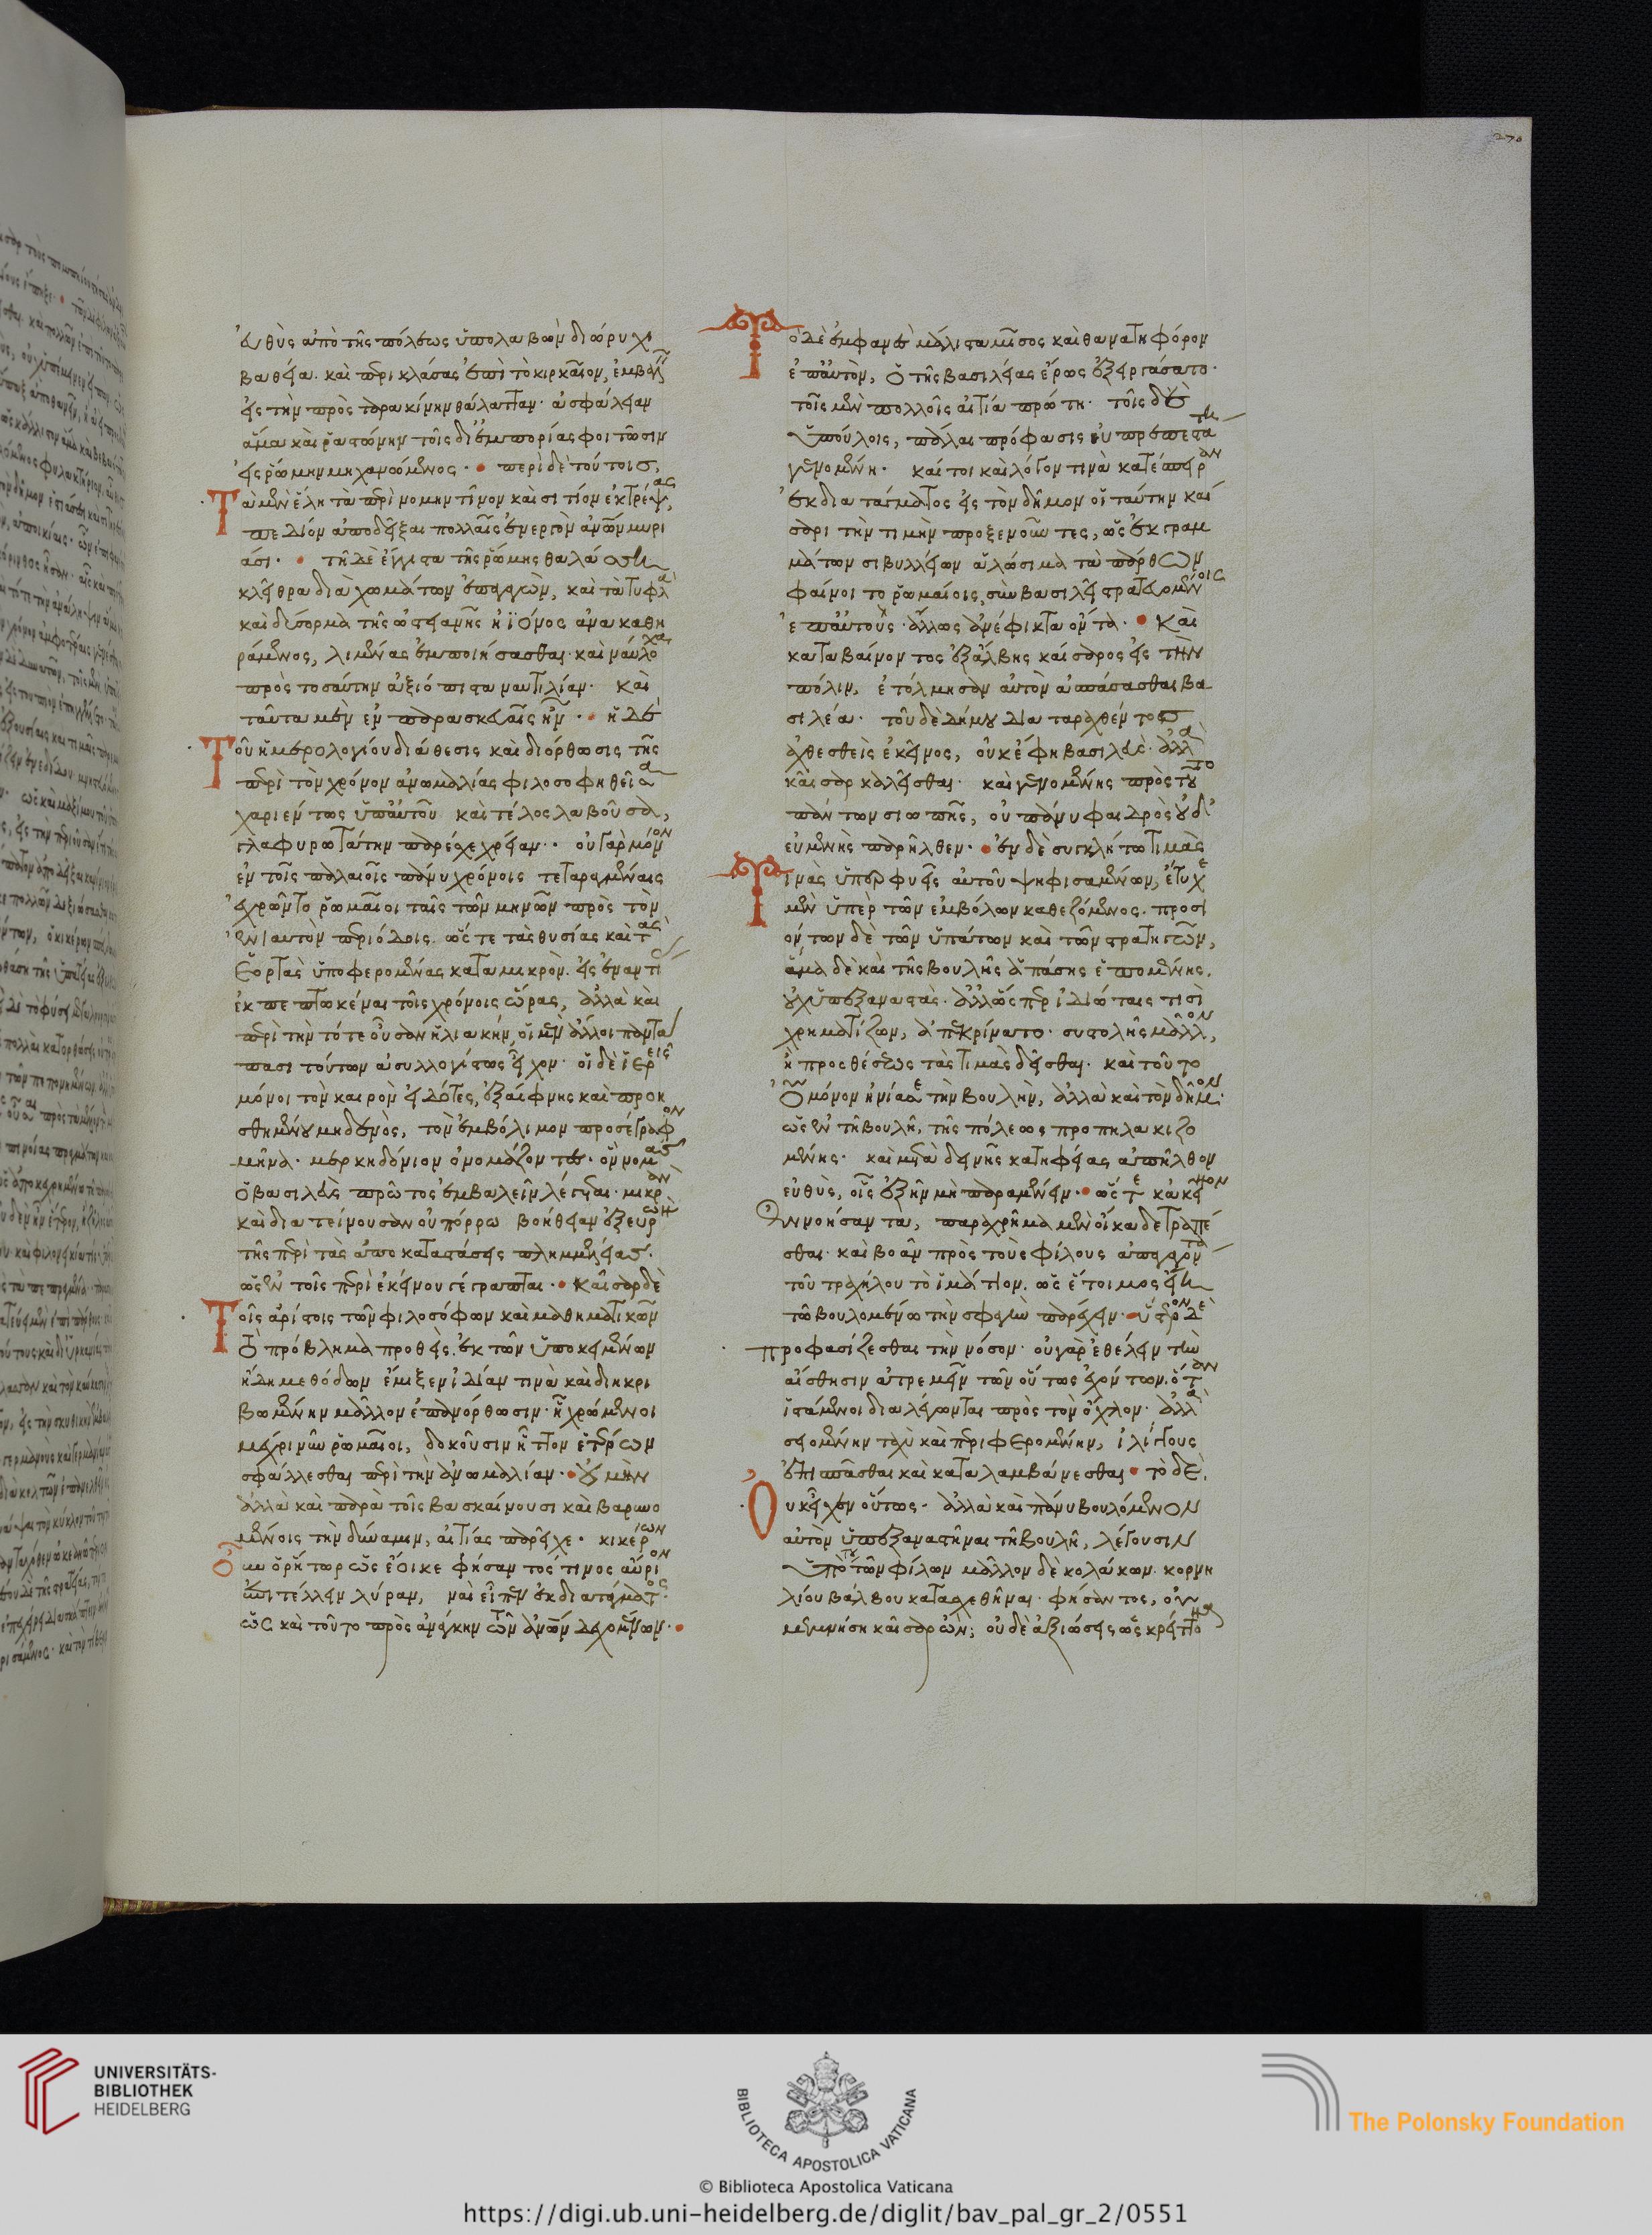 εὐθὺς ἀπὸ τῆς πόλεως ὑπολαβὼν διώρυχι
βαθεία· καὶ περικλάσας ἐπὶ τὸ κιρκαῖον, ἐμβαλεῖν
εἰς τὴν πρὸς ταρακίνην θάλατταν· ἀσφάλειαν
ἅμα καὶ ῥαστώνην τοῖς δι' ἐμπορίας φοιτῶσιν
εἰς ῥώμην μηχανώμενος· περὶ δὲ τούτοις,
Τὰ μὲν ἕλη τὰ περὶ νομεντῖνον καὶ σιτίον ἐκτρέψας,
πεδίον ἀποδεῖξαι πολλαῖς ἐνεργὸν ἀνῶν μυρι
άσι· τῇ δὲ ἔγγιστα τῆς ῥώμης θαλάσση
κλεῖθρα διὰ χωμάτων ἐπαγαγὼν, καὶ τὰ τυφλὰ
καὶ δύσορμα τῆς ὠστεανῆς ἠϊόνος ἀνακαθη
ράμενος, λιμένας ἐμποιήσασθαι· καὶ ναύλοχα
πρὸς τοσαύτην ἀξιόπιστα ναυτιλίαν· καὶ
ταῦτα μὲν ἐν παρασκευαῖς ἦν· ἡ δὲ
Τοῦ ἡμερολογίου διάθεσις καὶ διόρθωσις τῆς
περὶ τὸν χρόνον ἀνωμαλίας φιλοσοφηθεῖσα
χαριέντως ὑπ' αὐτοῦ καὶ τέλος λαβοῦσα,
γλαφυρωτάτην παρέσχε χρείαν· οὐ γὰρ μόνον
ἐν τοῖς παλαιοῖς πάνυ χρόνοις τεταραγμέναις
ἐχρῶντο ῥωμαῖοι ταῖς τῶν μηνῶν πρὸς τὸν
ἐνιαυτὸν περιόδοις· ὥστε τὰς θυσίας καὶ τὰς
ἑορτὰς ὑποφερομένας κατὰ μικρὸν· εἰς ἐναντί
ἐκπεπτωκέναι τοῖς χρόνοις ὥρας, ἀλλὰ καὶ
περὶ τὴν τότε οὖσαν ἡλιακήν, οἱ μὲν ἄλλοι παντά
πασι τούτων ἀσυλλογίστως εἶχον· οἱ δὲ ἱερεῖς
μόνοι τὸν καιρὸν εἰδότες, ἐξαίφνης καὶ προη
σθημένου μηδενὸς, τὸν ἐμβόλιμον προσέγραφον
μῆνα· μερκηδόνιον ὀνομάζοντες· ὃν νομᾶς
ὁ βασιλεὺς πρῶτος ἐμβαλεῖν λέγεται· μικρὰν
καὶ διατείνουσαν οὐ πόρρω βοήθειαν ἐξευρὼν
τῆς περὶ τὰς ἀποκαταστάσεις πλημμελείας·
ὡς ἐν τοῖς περὶ ἐκείνου γέγραπται· καῖσαρ δὲ
Τοῖς ἀρίστοις τῶν φιλοσόφων καὶ μαθηματικῶν
τὸ πρόβλημα προθεὶς· ἐκ τῶν ὑποκειμένων
ἤδη μεθόδων ἔμιξεν ἰδίαν τινὰ καὶ διηκρι
βωμένην μᾶλλον ἐπανόρθωσιν· ἧ χρώμενοι
μέχρι νῦν ῥωμαῖοι, δοκοῦσιν ἧττον ἑτέρων
σφάλλεσθαι περὶ τὴν ἀνωμαλίαν· οὐ μὴν
ἀλλὰ καὶ παρὰ τοῖς βασκαίνουσι καὶ βαρυνο
μένοις τὴν δύναμιν, αἰτίας παρεῖχε· κικέρων
οὖν ὁ ῥήτωρ ὡς ἔοικε φήσαντός τινος αὔριον
ἐπιτέλλειν λύραν, ναὶ εἶπεν ἐκ διατάγματος·
ὡς καὶ τοῦτο πρὸς ἀνάγκην τῶν ἀνῶν δεχομένων·
Τὸ δὲ ἐμφανὲς μάλιστα μῖσος καὶ θανατηφόρον
ἐπ' αὐτὸν, ὁ τῆς βασιλείας ἔρως ἐξειργάσατο·
τοῖς μὲν πολλοῖς αἰτία πρώτη· τοῖς δὲ
ὑπούλοις, πάλαι πρόφασις εὐπρεπεστάτη
γενομένη· καίτοι καὶ λόγον τινὰ κατέσπειραν
ἐκ διατάγματος εἰς τὸν δῆμον οἱ ταύτην καί
σαρι τὴν τιμὴν προξενοῦντες, ὡς ἐκ γραμ
μάτων σιβυλλείων ἁλώσιμα τὰ πάρθων
φαίνοι το ῥωμαίοις, σὺν βασιλεῖ στρατευομένοις
ἐπ' αὐτοὺς· ἄλλως ἀνέφικτα ὄντα· Καὶ
καταβαίνοντος ἐξ ἄλβης καίσαρος εἰς τὴν
πόλιν, ἐτόλμησαν αὐτὸν ἀσπάσασθαι βα
σιλέα· τοῦ δὲ δήμου διαταραχθέντος
ἀχθεσθεὶς ἐκεῖνος, οὐκ ἔφη βασιλεὺς· ἀλλὰ
καῖσαρ καλεῖσθαι· καὶ γενομένης πρὸς τοῦτο
πάντων σιωπῆς, οὐ πάνυ φαιδρὸς οὐδ'
εὐμενὴς παρῆλθεν· ἐν δὲ συγκλήτω τιμὰς
Τινὰς ὑπερφυεῖς αὐτοῦ ψηφισαμένων, ἔτυχε
μὲν ὑπὲρ τῶν ἐμβόλων καθεζόμενος· προσι
όντων δὲ τῶν ὑπάτων καὶ τῶν στρατηγῶν,
ἅμα δὲ καὶ τῆς βουλῆς ἁπάσης ἑπομένης,
οὐχ ὑπεξαναστὰς· ἀλλ' ὥσπερ ἰδιώταις τισὶ
χρηματίζων, ἀπεκρίνατο· συστολῆς μᾶλλον,
ἢ προσθέσεως τὰς τιμὰς δεῖσθαι· καὶ τοῦτο
οὐ μόνον ἠνίασε τὴν βουλὴν, ἀλλὰ καὶ τὸν δῆμον·
ὡς ἐν τῇ βουλῇ, τῆς πόλεως προπηλακιζο
μένης· καὶ μετὰ δεινῆς κατηφείας ἀπῆλθον
εὐθὺς, οἷς ἐξῆν μὴ παραμένειν· ὥστε κἀκεῖνον
ἐννοήσαντα, παραχρῆμα μὲν οἴκαδε τραπέ
σθαι· καὶ βοᾶν πρὸς τοὺς φίλους ἀπαγαγόντα
τοῦ τραχήλου τὸ ἱμάτιον· ὡς ἕτοιμος εἴη
τῶ βουλομένω τὴν σφαγὴν παρέχειν· ὕστερον δὲ
προφασίζεσθαι τὴν νόσον· οὐ γὰρ ἐθέλειν τὴν
αἴσθησιν ἀτρεμεῖν τῶν οὕτως ἐχόντων· ὅταν
ἱστάμενοι διαλέγωνται πρὸς τὸν ὄχλον· ἀλλὰ
σειομένην ταχὺ καὶ περιφερομένην, ἰλίγγους
ἐπισπᾶσθαι καὶ καταλαμβάνεσθαι· τὸ δὲ,
Οὐκ εἶχεν οὕτως· ἀλλὰ καὶ πάνυ βουλόμενον
αὐτὸν ὑπεξαναστῆναι τῇ βουλῇ, λέγουσιν
ὑπό του τῶν φίλων μᾶλλον δὲ κολάκων· κορνη
λίου βάλβου κατασχεθῆναι· φήσαντος, οὐ
μεμνήση καῖσαρ ὤν; οὐδὲ ἀξιώσεις ὡς κρείττονα
270
UNIVERSITÄTS-
BIBLIOTHEK
HEIDELBERG
BIBLIOTECA APOSTOLICA VATICANA
The Polonsky Foundation
© Biblioteca Apostolica Vaticana
https://digi.ub.uni-heidelberg.de/diglit/bav_pal_gr_2/0551